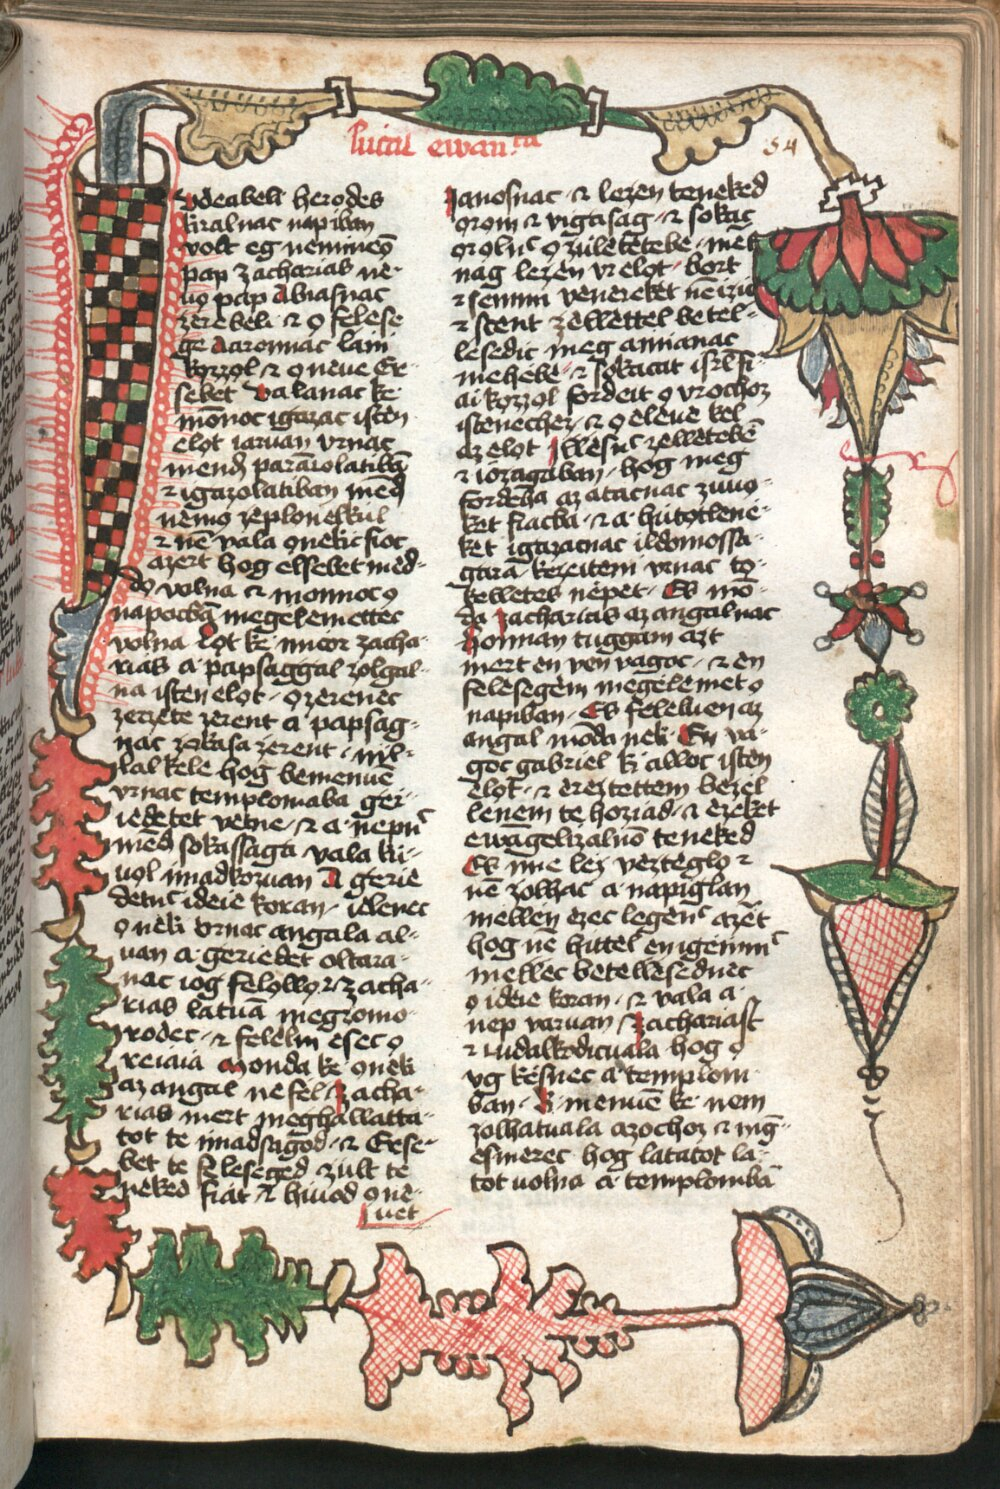 lucač ewan.ta
54
vdeabeli herodes
kiralnac napiban
volt eg neminèmo̗
pap zacharias nè-
uo̗ pap Abiasnac
zèrèbèli ⁊ o̗ felese
ge Aaronnac lańi
kozzol ⁊ o̗ nèuè Er-
sebet valanac ke
mōnoc igazac istèn
èlo̗t iaruan vrnac
mendē parāčolatibā
⁊ igazolatiban mēd
nèmo̗ zèplo̗nelkul
⁊ nē vala o̗nèkic fioc
azert hog elsebet mèd-
do̗ volna ⁊ monnoc o̗
napočbā megèlèmèttec
volna Lo̗t kè mičor zacha-
rias a papsaggal zolgal-
na istèn elo̗t o̗ zèrènec
zèrzètè zèrent a papsag-
nac zokasa zèrent mil-
lal kèlè hog bèmenuē
vrnac templomaba gèr-
iedètèt vètnè ⁊ a nepnc
mēd sokassaga vala ki-
uo̗l imadkozuan A gèrie
dètnc idèiè koran ièlènec
o̗nèki vrnac angala al-
uan a gèriedèt oltara-
nac iog felo̗llo̗ ⁊ zacha-
rias latuā mègzomo-
rodec ⁊ felèlm esec o̗
rèiaia Monda kè o̗nèki
az angal nè fel zacha-
rias mert mèghallatta-
tot te imadsagod ⁊ Erse-
bet te felèseged zu̗l te
nèked fiat ⁊ hiuod o̗ nè-
uèt
Ianosnac ⁊ lèzèn tenèkèd
o̗ro̗m ⁊ vigasag ⁊ sokac
o̗ro̗lnc o̗ zu̗lètètebè mert
nag lèzèn vr èlo̗t bort
⁊ semmi rezegeitot nèizic
⁊ scent zèllèttèl bètèl-
lèsèdic mèg ańńanac
mehebè ⁊ sokacat isrl fi-
ai kozzo̗l fordeit o̗ vrokhoz
istènèchèz ⁊ o̗ èleuè kèl
az elo̗t Illesnc zèllètebē
⁊ iozagaban hog mèg
fordèčča az atačnac zuuo̗-
kèt fiacba ⁊ a hutotlènè-
kèt igazačnac ildomossa-
gara kezeitèm vrnac to̗-
kelletès nepèt Es mō-
da zacharias az angalnac
Honnan tuggam azt
mert en ven vagoc ⁊ en
felèsegèm mègèlemet o̗
napiban Es felèluen az
angal monda nèki En va-
goc gabriel ki alloc istèn
elo̗t ⁊ èrèztèttèm bezel-
lenèm te hoziad ⁊ èzèkèt
èwāgèlizalnō tenèkèd
Es imè lèz vèztèglo̗ ⁊
nē zolhac a napiglan
mellèn èzèc lègènc azèrt
hog nē hittel en igeimnc
mellèc bètèllèsèdnèc
o̗ idèiè koran ⁊ vala a
nep varuan zachariast
⁊ čudalkodicuala hog o̗
vg kesnec a templom-
ban Ki menuē kè nem
zolhatuala azochoz ⁊ mg-
èsmerec hog latatot la-
tot uolna a templombā